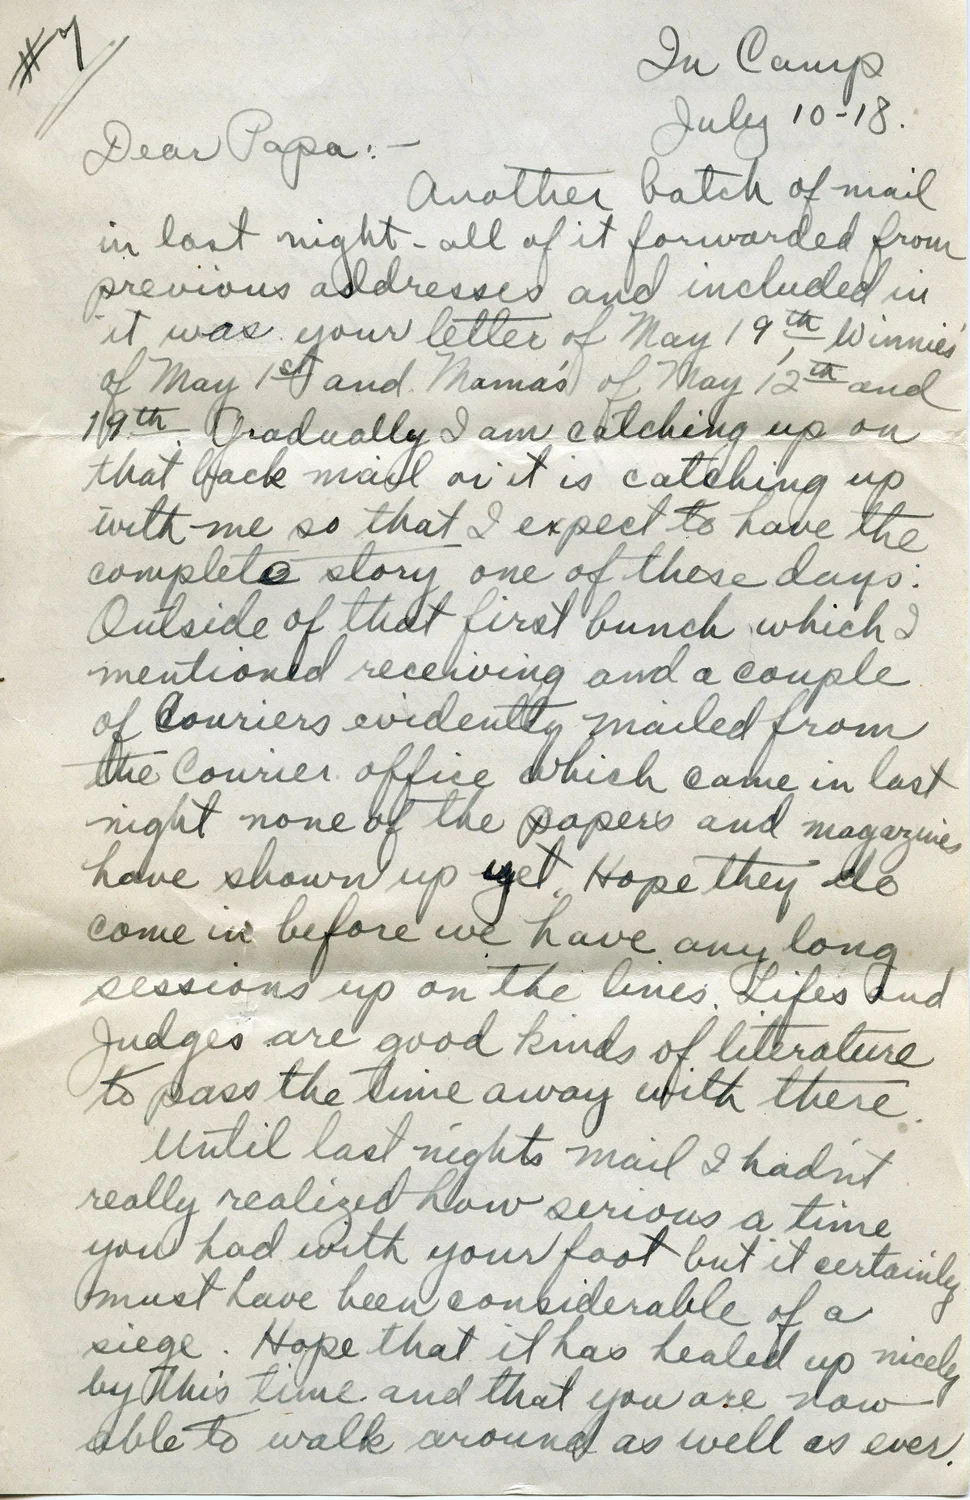 #7
In Camp
July 10-18.
Dear Papa:-
Another batch of mail
in last night - all of it forwarded from
previous addresses and included in
it was your letter of May 19th, Winnie's
of May 1st and Mama's of May 12th and
19th. Gradually I am catching up on
that back mail or it is catching up
with me so that I expect to have the
complete story one of these days.
Outside of that first bunch which I
mentioned receiving and a couple
of Couriers evidently mailed from
the Courier office which came in last
night none of the papers and magazines
have shown up yet. Hope they do
come in before we have any long
sessions up on the lines. Lifes and
Judges are good kinds of literature
to pass the time away with there.
Until last nights mail I hadn't
really realized how serious a time
you had with your foot but it certainly
must have been considerable of a
siege. Hope that it has healed up nicely
by this time and that you are now
able to walk around as well as ever.